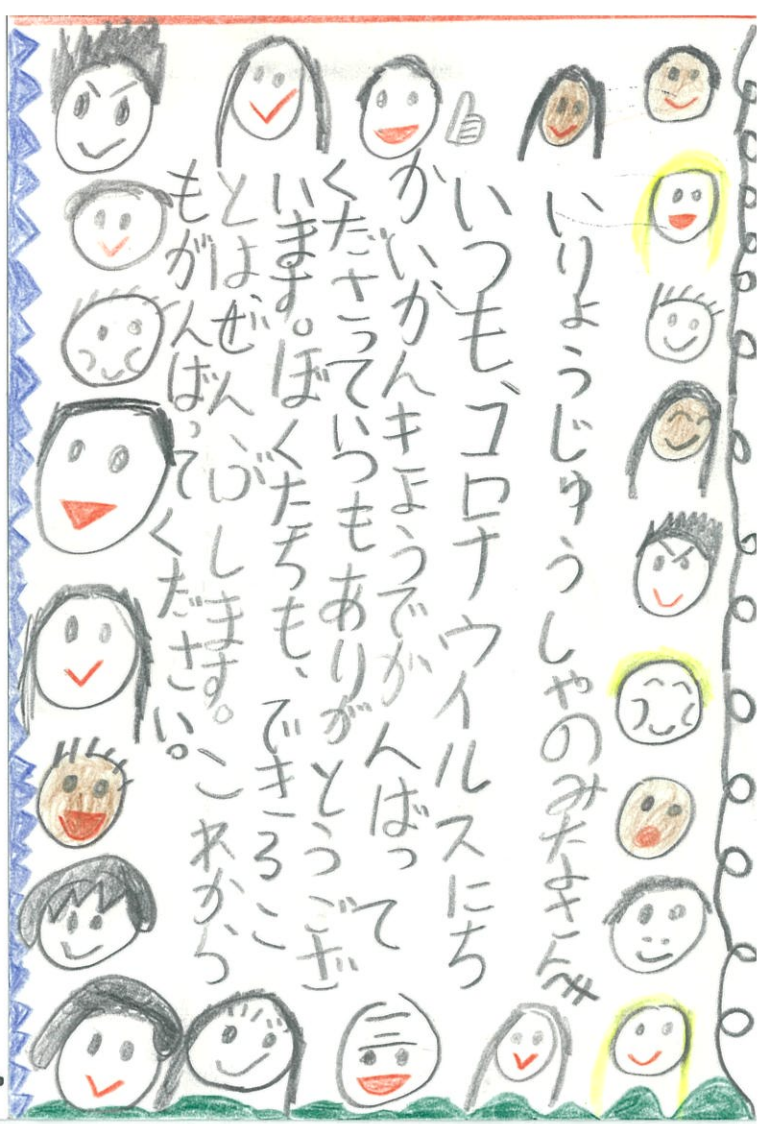 いりょうじゅうしゃのみなさんへ
いつも、コロナウイルスにち
かいかんきょうでがんばって
くださっていつもありがとうござ
います。ぼくたちも、できるこ
とはぜんぶします。これから
もがんばってください。